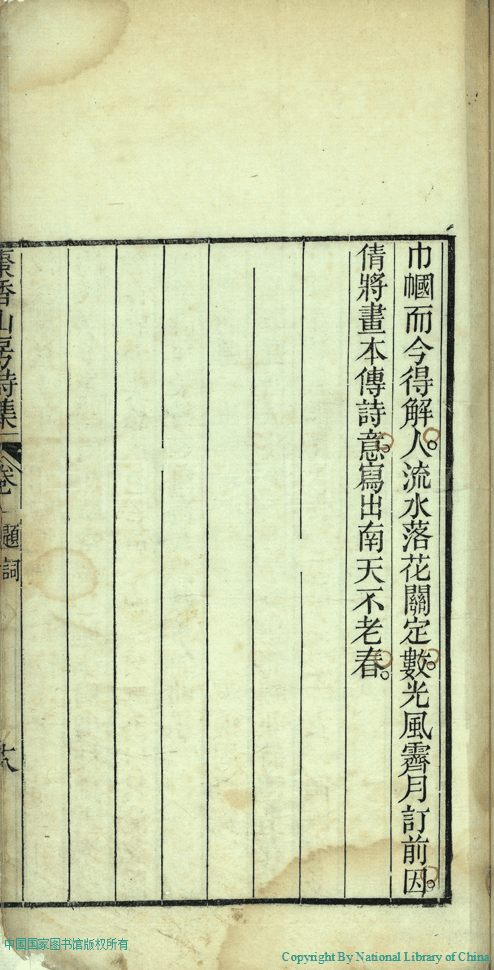 巾幗而今得解人。流水落花關定數。光風霽月訂前因。
倩將畫本傳詩意。寫出南天不老春。
香山房詩集
題詞
十八
中国国家图书馆版权所有
Copyright By National Library of China